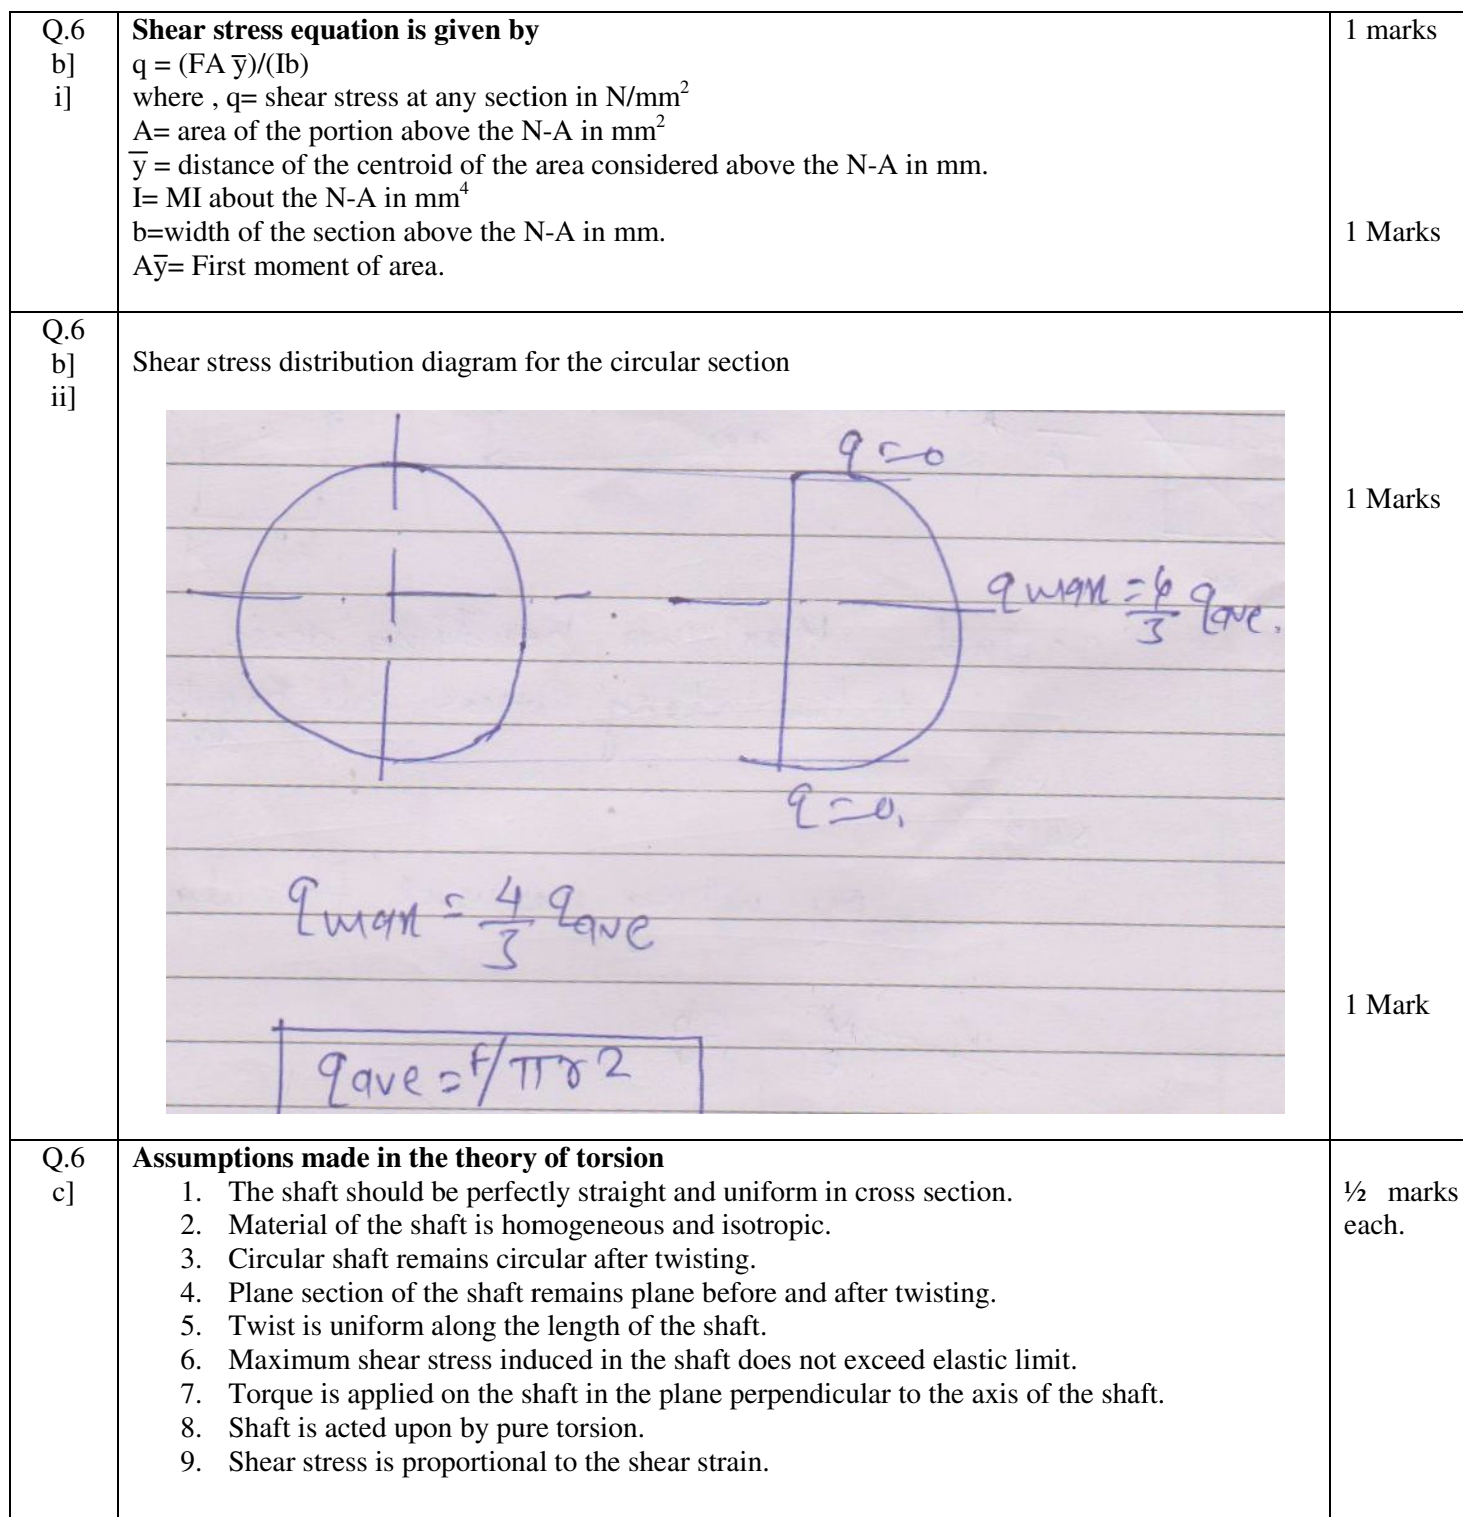 Q.6
b]
i]
Shear stress equation is given by
q = (FA y̅)/(Ib)
where , q= shear stress at any section in N/mm²
A= area of the portion above the N-A in mm²
y̅ = distance of the centroid of the area considered above the N-A in mm.
I= MI about the N-A in mm⁴
b=width of the section above the N-A in mm.
Ay̅= First moment of area.
1 marks
1 Marks
Q.6
b]
ii]
Shear stress distribution diagram for the circular section
q=0
qmax = 4/3 qave.
q=0.
qmax = 4/3 qave
qave = F/πr2
1 Marks
1 Mark
Q.6
c]
Assumptions made in the theory of torsion
1. The shaft should be perfectly straight and uniform in cross section.
2. Material of the shaft is homogeneous and isotropic.
3. Circular shaft remains circular after twisting.
4. Plane section of the shaft remains plane before and after twisting.
5. Twist is uniform along the length of the shaft.
6. Maximum shear stress induced in the shaft does not exceed elastic limit.
7. Torque is applied on the shaft in the plane perpendicular to the axis of the shaft.
8. Shaft is acted upon by pure torsion.
9. Shear stress is proportional to the shear strain.
½ marks
each.